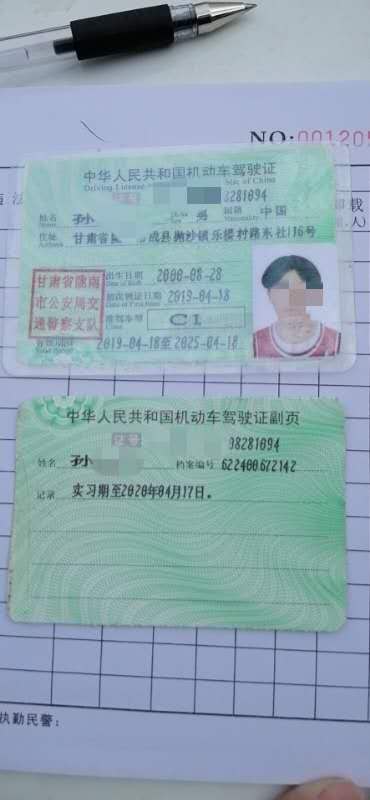 NO:001205
中华人民共和国机动车驾驶证
Driving License
证号 8281094
姓名 孙 男 国籍 中国
Name Nationality
住址 甘肃省 成县抛沙镇乐楼村路东社116号
甘肃省陇南
市公安局交
通警察支队
出生日期 2000-08-28
Date of Birth
初次领证日期 2019-04-18
准驾车型 C1
Class
有效期限 2019-04-18至2025-04-18
中华人民共和国机动车驾驶证副页
证号 08281094
姓名 孙 档案编号 622400672142
记录 实习期至2020年04月17日。
执勤民警: